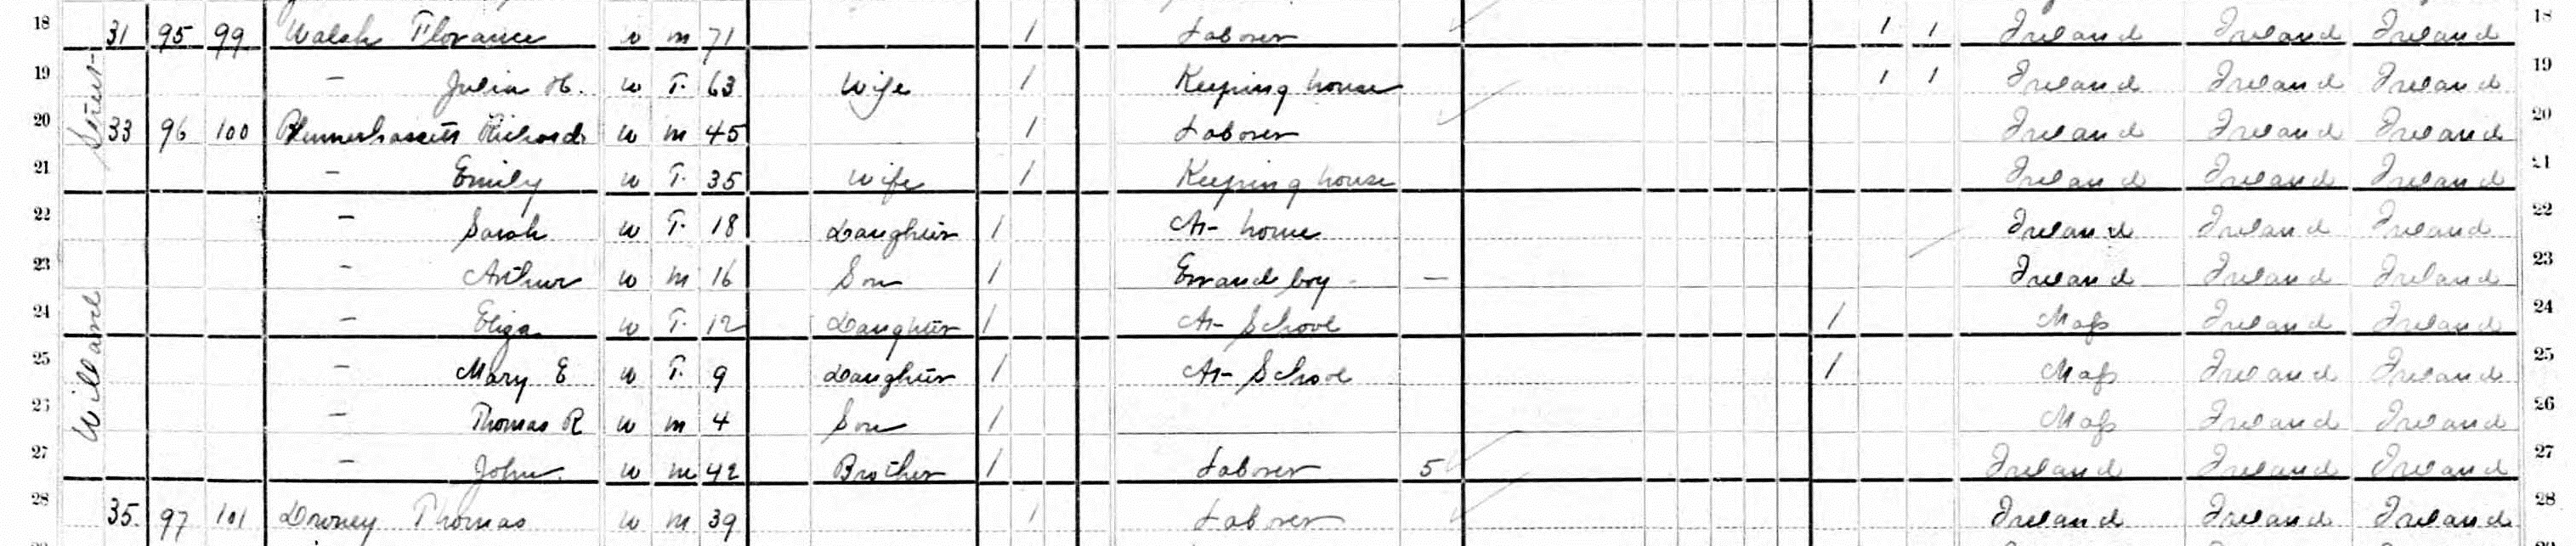 18 31 95 99 Walsh Florance W M 71 1 Laborer 1 1 Ireland Ireland Ireland 18
19 – Julia H. W F. 63 Wife 1 Keeping house 1 1 Ireland Ireland Ireland 19
20 33 96 100 Blennerhassett Richard W M 45 1 Laborer Ireland Ireland Ireland 20
21 – Emily W F. 35 Wife 1 Keeping house Ireland Ireland Ireland 21
22 – Sarah W F. 18 Daughter 1 At home Ireland Ireland Ireland 22
23 – Arthur W M 16 Son 1 Errand boy – Ireland Ireland Ireland 23
24 – Eliza W F. 12 Daughter 1 At School 1 Mass Ireland Ireland 24
25 – Mary E W F. 9 Daughter 1 At School 1 Mass Ireland Ireland 25
26 – Thomas R W M 4 Son 1 Mass Ireland Ireland 26
27 – John W M 42 Brother 1 Laborer 5 Ireland Ireland Ireland 27
28 35 97 101 Droney Thomas W M 39 1 Laborer Ireland Ireland Ireland 28
Willard Street